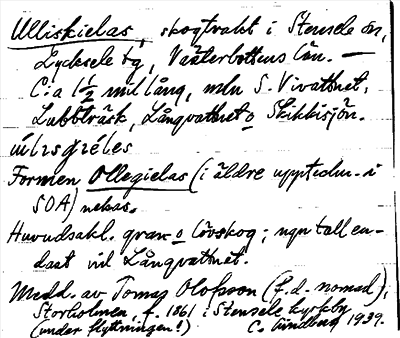 Ulliskielas, skogtrakt i Stensele sn,
Lycksele tg, Västerbottens län. —
C:a 1½ mil lång, mln S. Vivattnet,
Lubbträsk, Långvattnet o Skikkisjön.
Formen Ollegielas (i äldre uppteckn. i
SOA) nekas.
Huvudsakl. gran- o lövskog; ngn tall en-
dast vid Långvattnet.
Medd. av Tomas Olofsson (f.d. nomad),
Storholmen, f. 1861 i Stensele kyrkby
(under flyttningen!) C. Lundberg 1939.